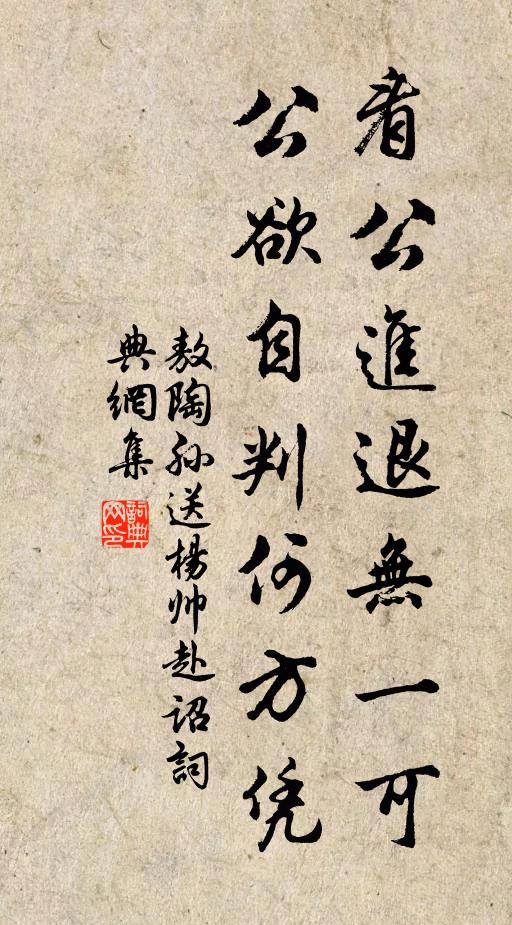 看公進退無一可
公欲自判何方凭
敖陶孫送楊帅赴诏詞
典網集
詞典网印